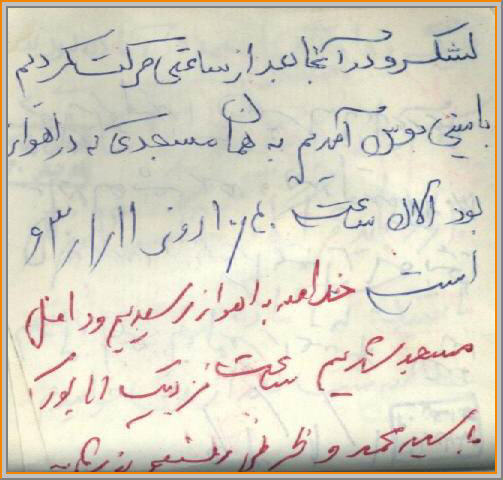 لشکر و در آنجا بعد از ساعتی حرکت کردیم
با مینی بوس آمدیم به همان مسجدی که در اهواز
بود الان ساعت روز
است خلاصه به اهواز رسیدیم و داخل
مسجد شدیم ساعت نزدیک
با سید محمد و